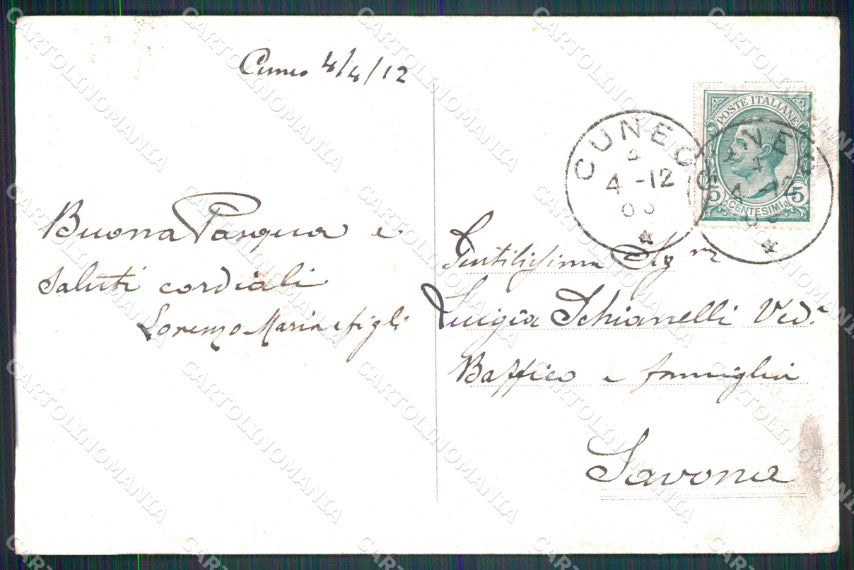 Cuneo 4/4/12
Buona Pasqua e
saluti cordiali
Lorenzo Maria e figli
POSTE ITALIANE
5 5
CENTESIMI
CUNEO
4-12
CUNEO
4-12
Gentilissima Sig.ra
Luigia Schianelli Ved.
Baffico e famiglia
Savona
CARTOLINOMANIA